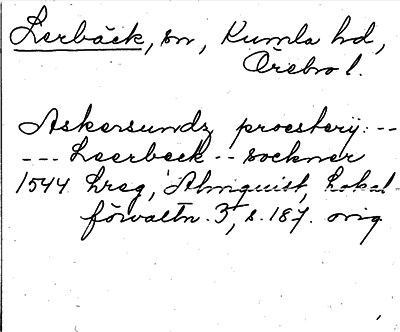 Lerbäck, sn, Kumla hd,
Örebro l.
Askersundzproestery: --
--- Leerbeck -- sockner
1544 Lreg, Almquist, Lokal-
förvaltn. 3, s. 187. orig